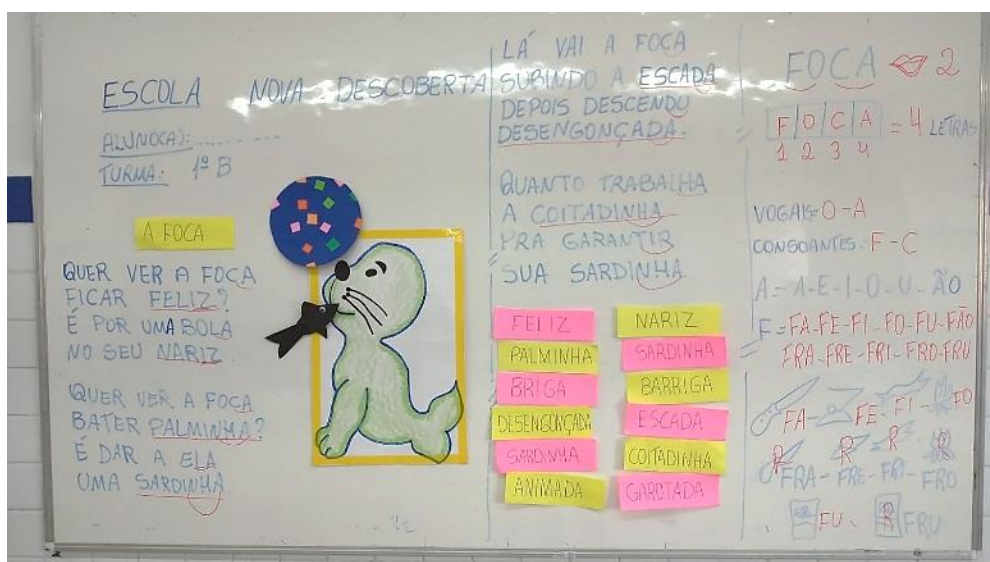 ESCOLA NOVA DESCOBERTA
ALUNO(A):..........
TURMA: 1º B
A FOCA
QUER VER A FOCA
FICAR FELIZ?
É POR UMA BOLA
NO SEU NARIZ
QUER VER A FOCA
BATER PALMINHA?
É DAR A ELA
UMA SARDINHA.
LÁ VAI A FOCA
SUBINDO A ESCADA
DEPOIS DESCENDO
DESENGONÇADA.
QUANTO TRABALHA
A COITADINHA
PRA GARANTIR
SUA SARDINHA.
FELIZ
NARIZ
PALMINHA
SARDINHA
BRIGA
BARRIGA
DESENGONÇADA
ESCADA
SARDINHA
COITADINHA
ANIMADA
GAROTADA
FOCA 2
F O C A = 4 LETRAS
1 2 3 4
VOGAIS= O-A
CONSOANTES: F-C
A= A-E-I-O-U-ÃO
F=FA-FE-FI-FO-FU-FÃO
FRA-FRE-FRI-FRO-FRU
FA- FE- FI- FO
R R R R
FRA- FRE- FRI- FRO
FU R FRU